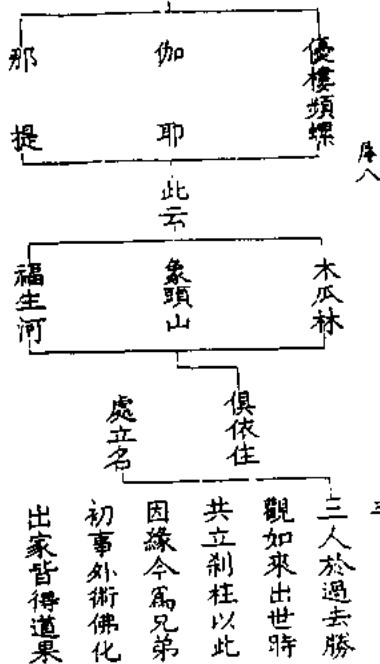 序八
優樓頻螺
伽耶
那提
此云
木瓜林
象頭山
福生河
俱依住
處立名
三人於過去勝
觀如來出世時
共立剎柱以此
因緣今爲兄弟
初事外術佛化
出家皆得道果